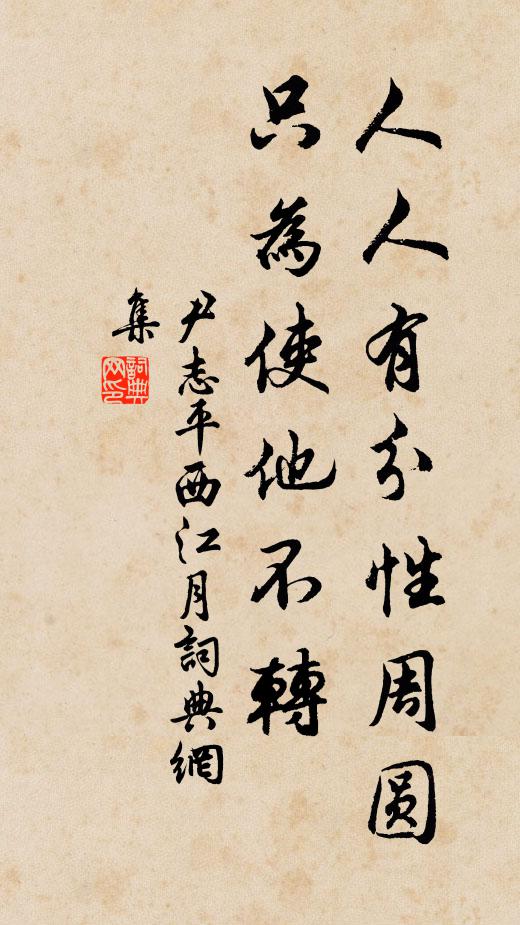 人人有分性周圆
只為使他不轉
尹志平西江月詞典網
集
詞典网印